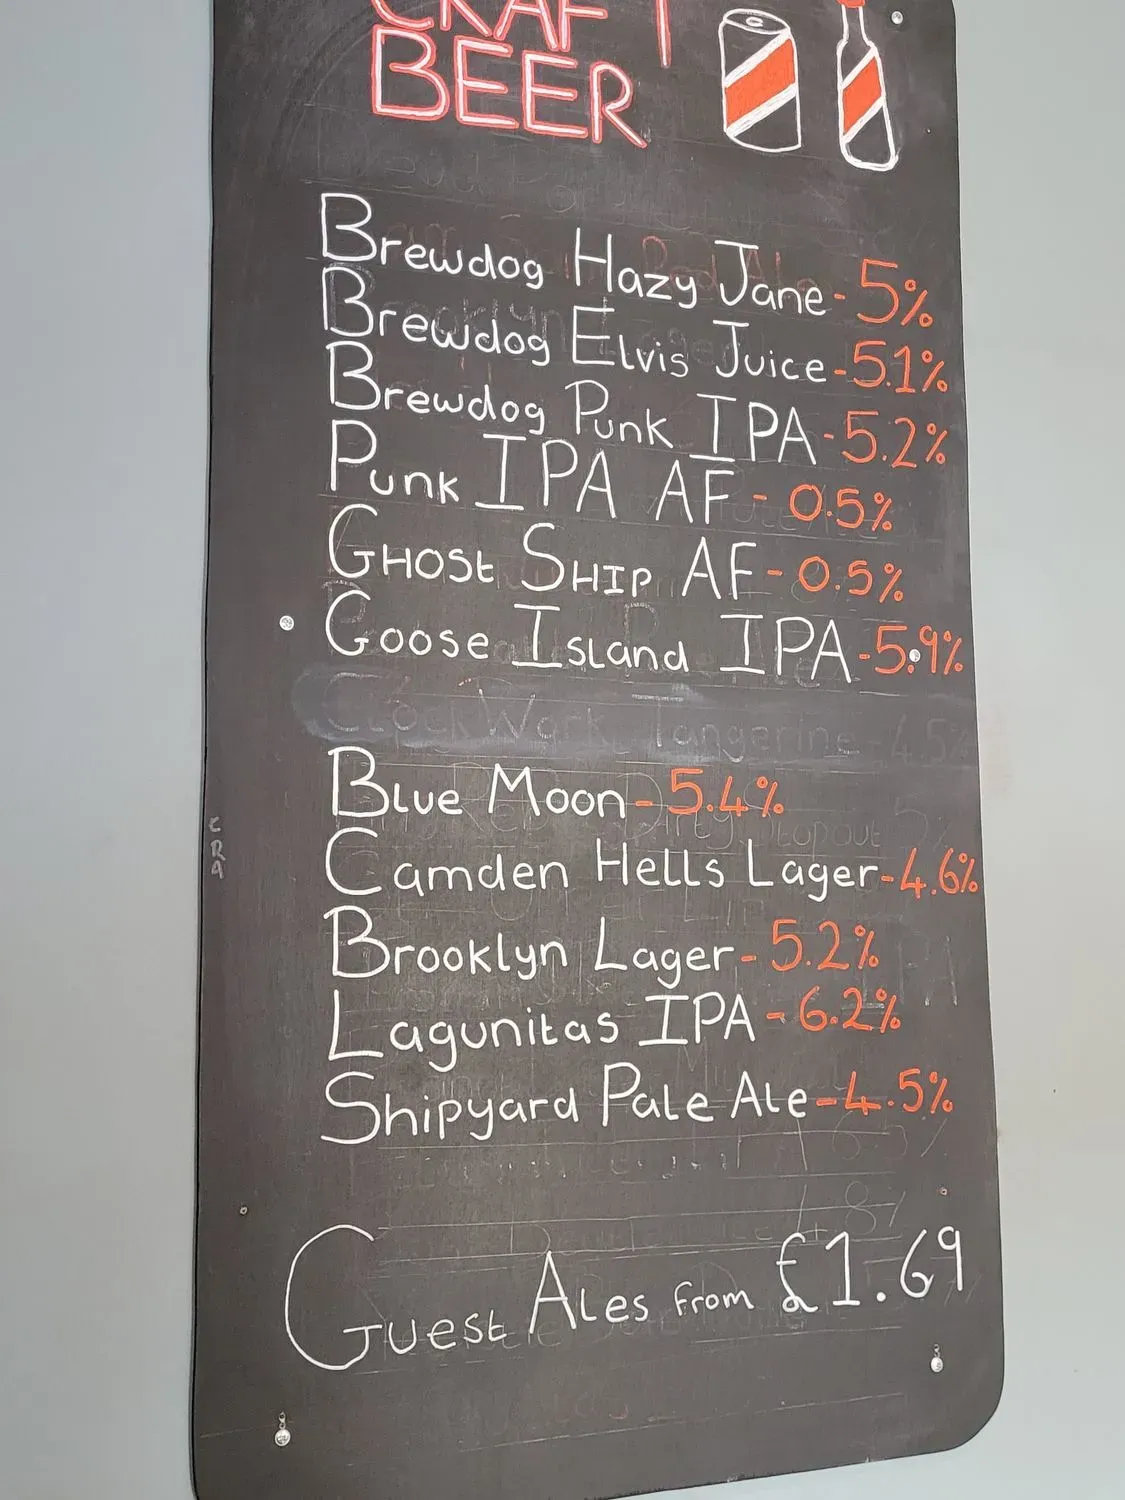 CRAFT
BEER
Brewdog Hazy Jane - 5%
Brewdog Elvis Juice - 5.1%
Brewdog Punk IPA - 5.2%
Punk IPA AF - 0.5%
Ghost Ship AF - 0.5%
Goose Island IPA - 5.9%
Clockwork Tangerine - 4.5%
Blue Moon - 5.4%
Camden Hells Lager - 4.6%
Brooklyn Lager - 5.2%
Lagunitas IPA - 6.2%
Shipyard Pale Ale - 4.5%
Guest Ales from £1.69